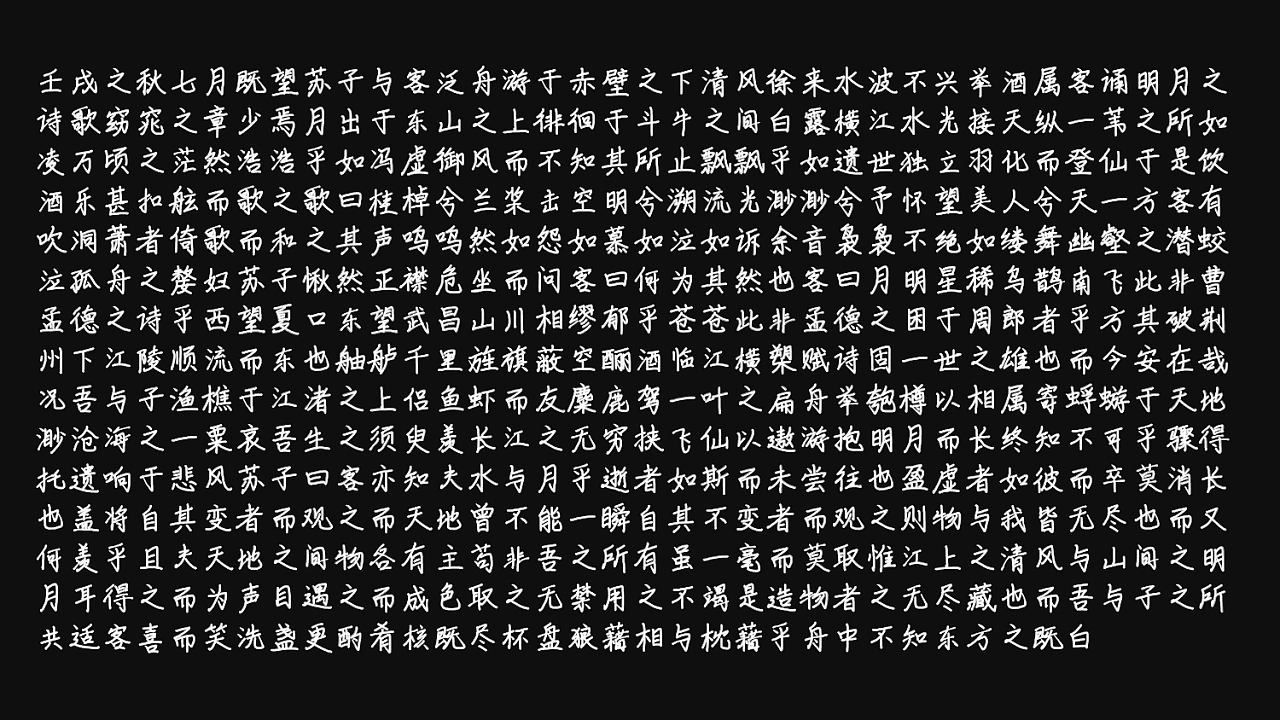 壬戌之秋七月既望苏子与客泛舟游于赤壁之下清风徐来水波不兴举酒属客诵明月之
诗歌窈窕之章少焉月出于东山之上徘徊于斗牛之间白露横江水光接天纵一苇之所如
凌万顷之茫然浩浩乎如冯虚御风而不知其所止飘飘乎如遗世独立羽化而登仙于是饮
酒乐甚扣舷而歌之歌曰桂棹兮兰桨击空明兮溯流光渺渺兮予怀望美人兮天一方客有
吹洞萧者倚歌而和之其声呜呜然如怨如慕如泣如诉余音袅袅不绝如缕舞幽壑之潜蛟
泣孤舟之嫠妇苏子愀然正襟危坐而问客曰何为其然也客曰月明星稀乌鹊南飞此非曹
孟德之诗乎西望夏口东望武昌山川相缪郁乎苍苍此非孟德之困于周郎者乎方其破荆
州下江陵顺流而东也舳舻千里旌旗蔽空酾酒临江横槊赋诗固一世之雄也而今安在哉
况吾与子渔樵于江渚之上侣鱼虾而友麋鹿驾一叶之扁舟举匏樽以相属寄蜉蝣于天地
渺沧海之一粟哀吾生之须臾羡长江之无穷挟飞仙以遨游抱明月而长终知不可乎骤得
托遗响于悲风苏子曰客亦知夫水与月乎逝者如斯而未尝往也盈虚者如彼而卒莫消长
也盖将自其变者而观之而天地曾不能一瞬自其不变者而观之则物与我皆无尽也而又
何羡乎且夫天地之间物各有主苟非吾之所有虽一毫而莫取惟江上之清风与山间之明
月耳得之而为声目遇之而成色取之无禁用之不竭是造物者之无尽藏也而吾与子之所
共适客喜而笑洗盏更酌肴核既尽杯盘狼藉相与枕藉乎舟中不知东方之既白